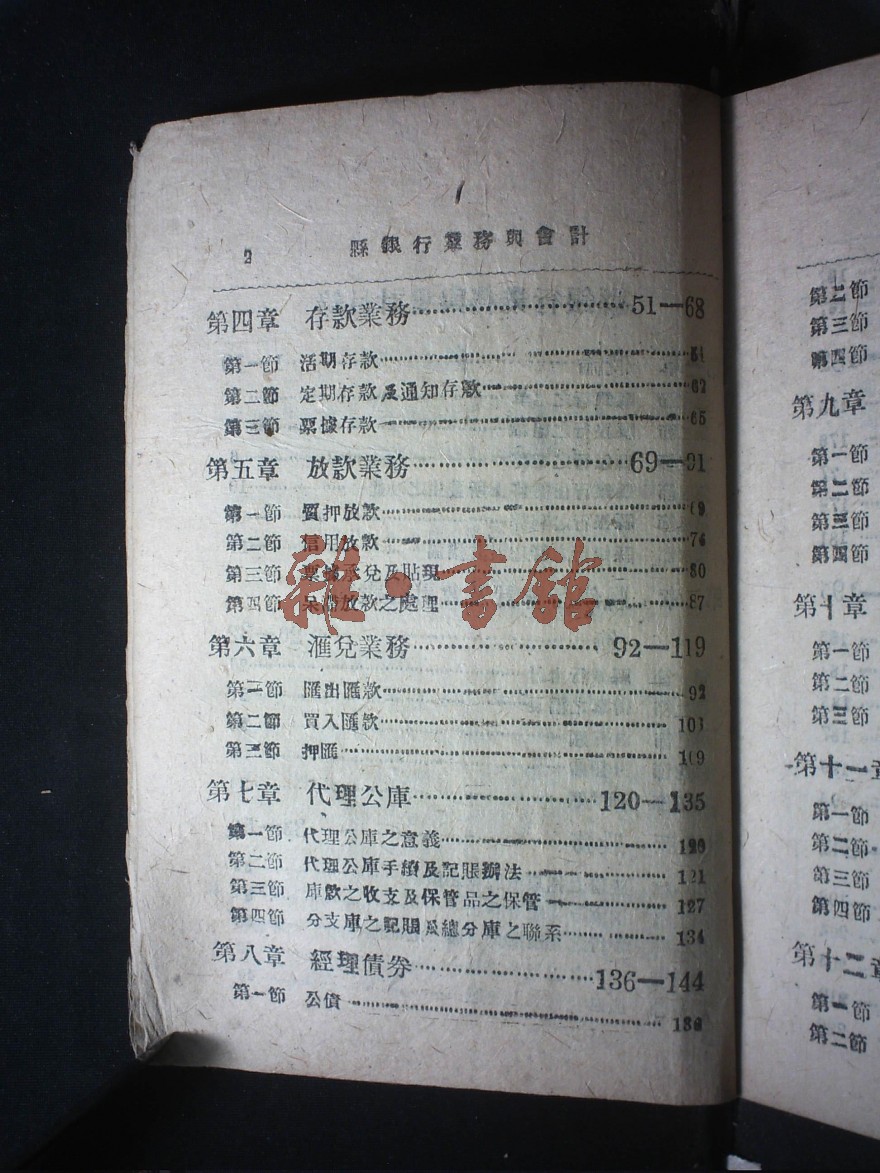 2 縣銀行業務與會計
第四章 存款業務 51—68
第一節 活期存款 51
第二節 定期存款及通知存款 62
第三節 票據存款 65
第五章 放款業務 69—91
第一節 質押放款 69
第二節 信用放款 74
第三節 票據承兌及貼現 80
第四節 呆滯放款之處理 87
雜·書館
第六章 滙兌業務 92—119
第一節 匯出匯款 92
第二節 買入匯款
第三節 押匯 109
第七章 代理公庫 120—135
第一節 代理公庫之意義 120
第二節 代理公庫手續及記賬辦法 121
第三節 庫款之收支及保管品之保管 127
第四節 分支庫之記賬及總分庫之聯系 134
第八章 經理債券 136—144
第一節 公債 136
第二節
第三節
第四節
第九章
第一節
第二節
第三節
第四節
第十章
第一節
第二節
第三節
第十一章
第一節
第二節
第三節
第四節
第十二章
第一節
第二節